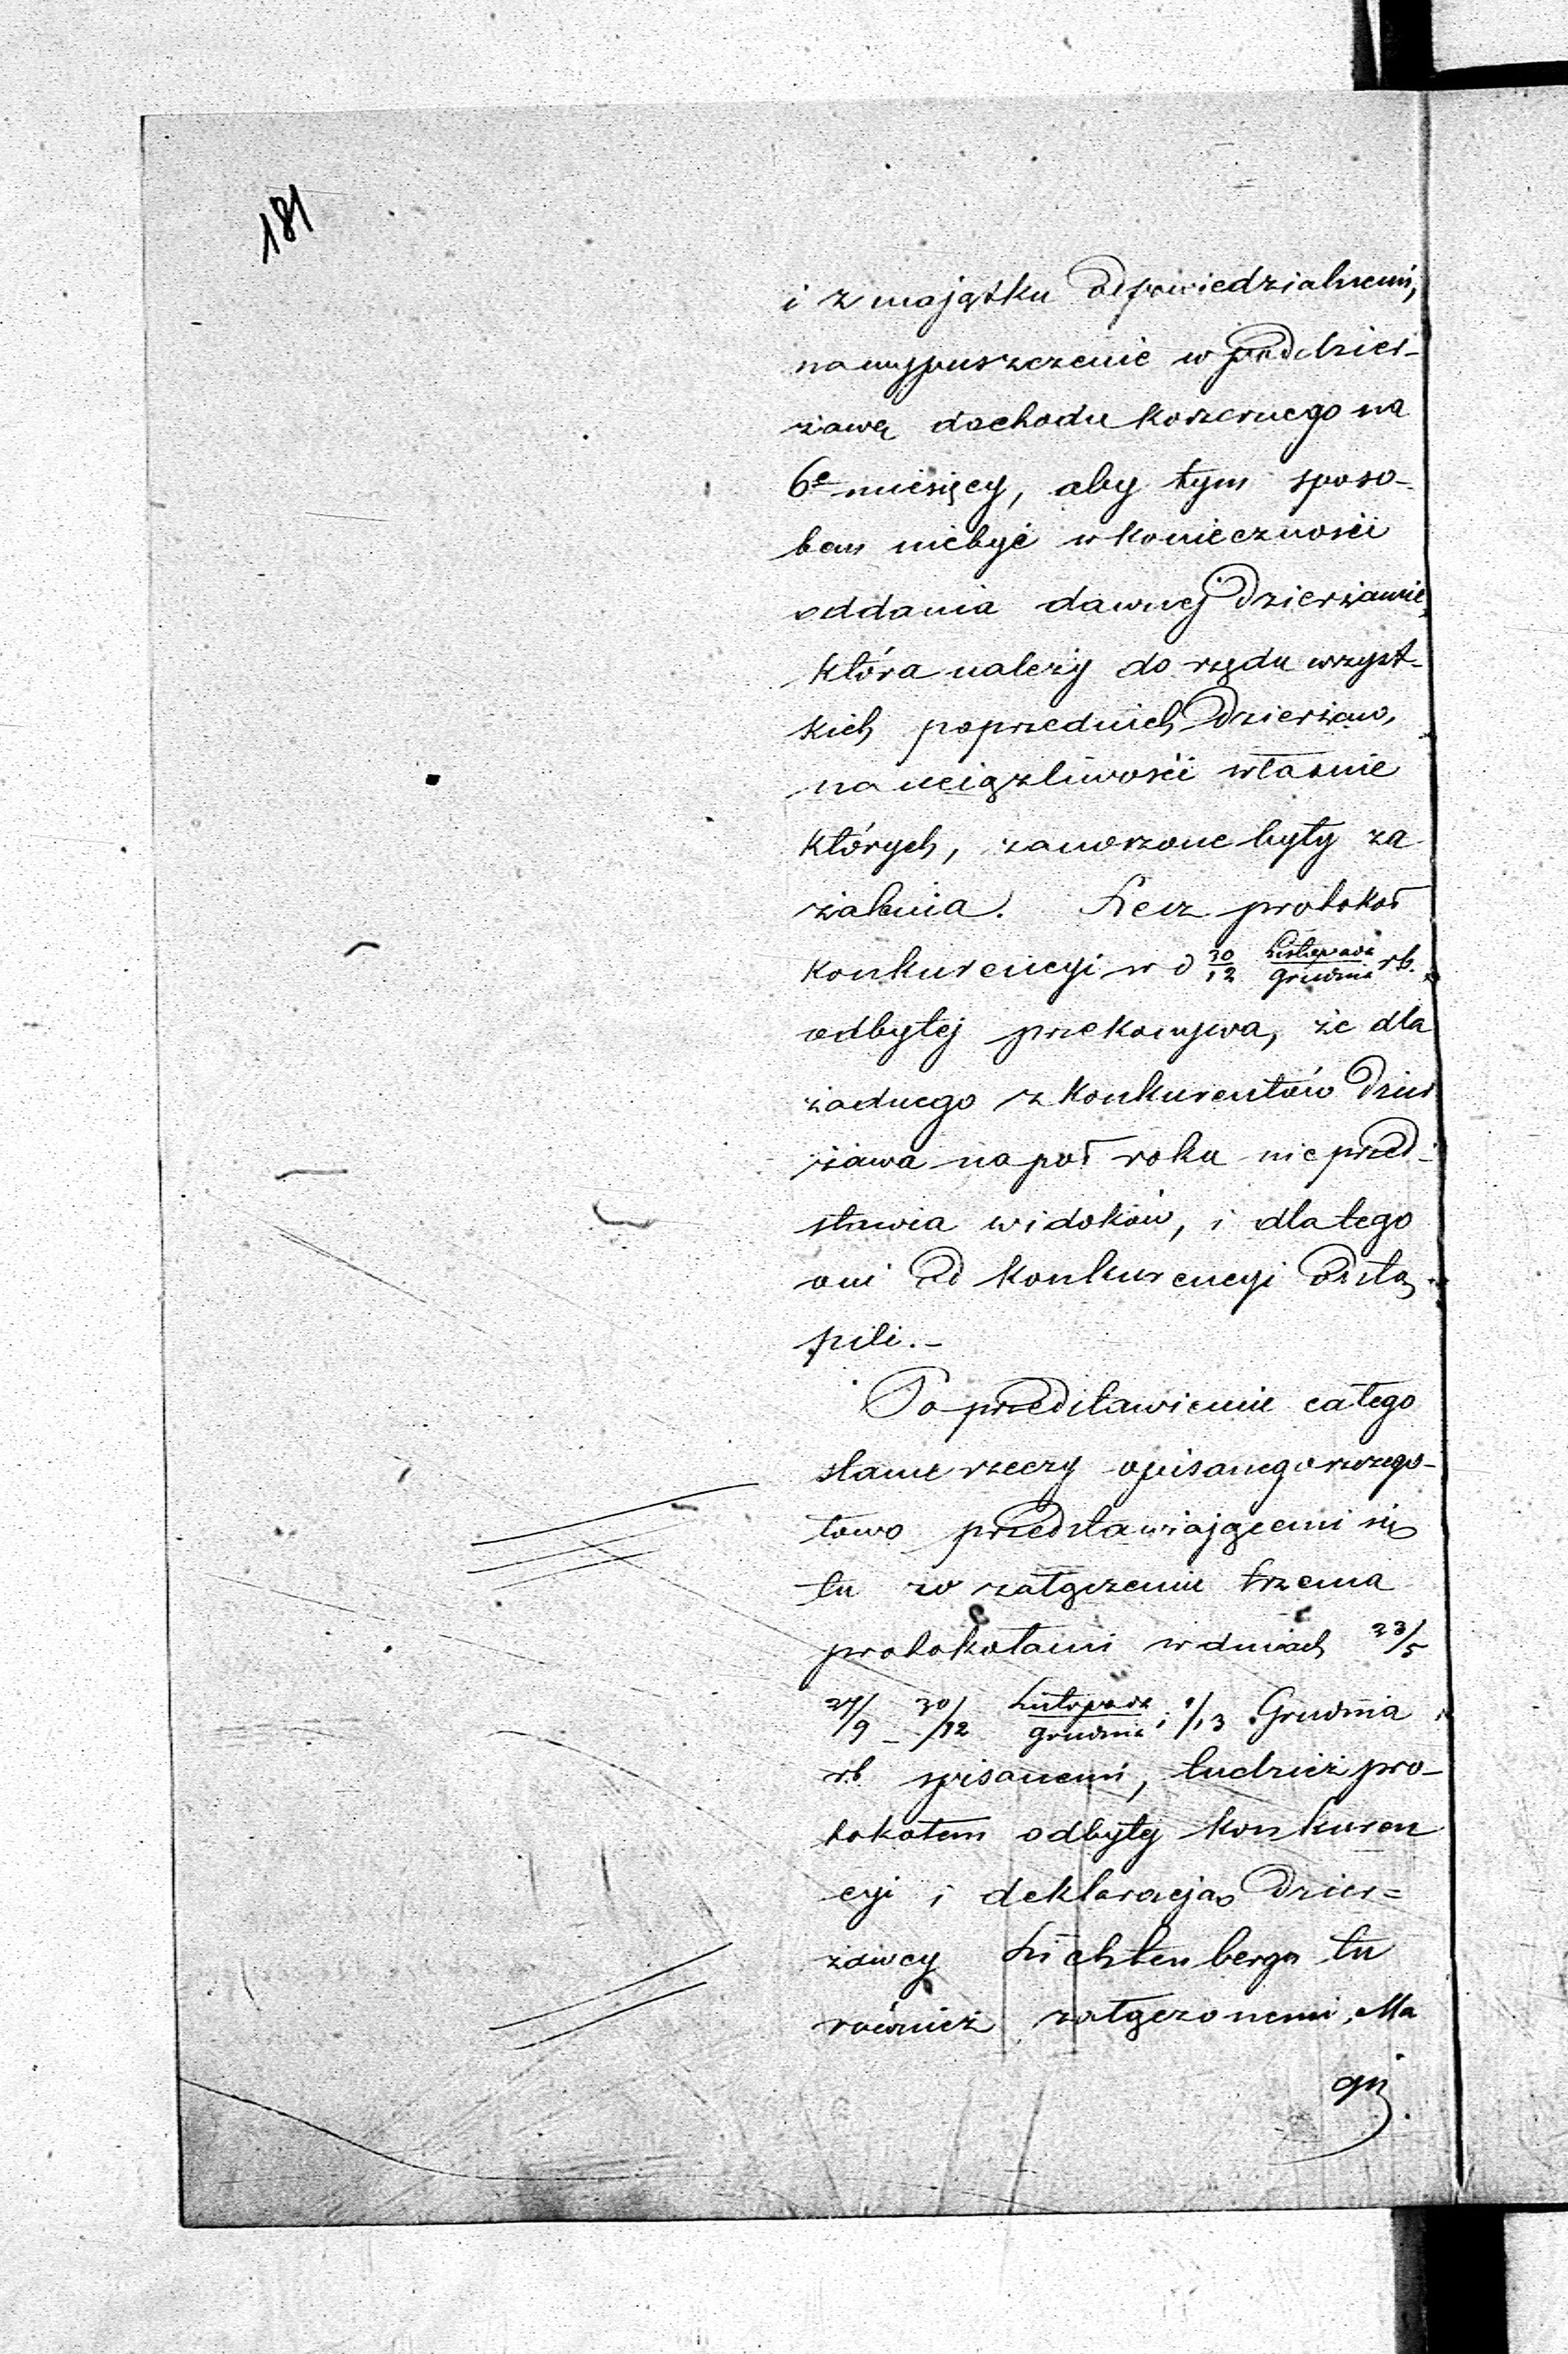 181
i z majątku odpowiedzialnemi,
na wypuszczenie w poddzier-
żawę dochodu koszernego na
6ć miesięcy, aby tym sposo-
bem niebyć w konieczności
oddania dawnej Dzierżawie
która należy do rzędu wszyst-
kich poprzednich Dzierżaw,
na uciążliwości własnie
których, zanoszone były za
żalenia. Lecz protokoł
konkurencyi w d 30/12 Listopada/Grudnia rb.
odbytej przekonywa, że dla
żadnego z konkurentów Dzier
żawa na poł roku nie przed-
stawia widoków, i dla tego
oni od konkurencyi odstą
pili.-
Po przedstawieniu całego
stanu rzeczy opisanego szczego-
łowo przedstawiającemi się
tu w załączeniu trzema
protokołami w dniach 23/5
27/9 - 30/12 Listopada/Grudnia i 1/13 Grudnia
rb spisanemi, tudzież pro-
tokołem odbytej konkuren
cyi i deklaracją Dzier=
żawcy Lichtenberga tu
również załączonemi, Ma
gi